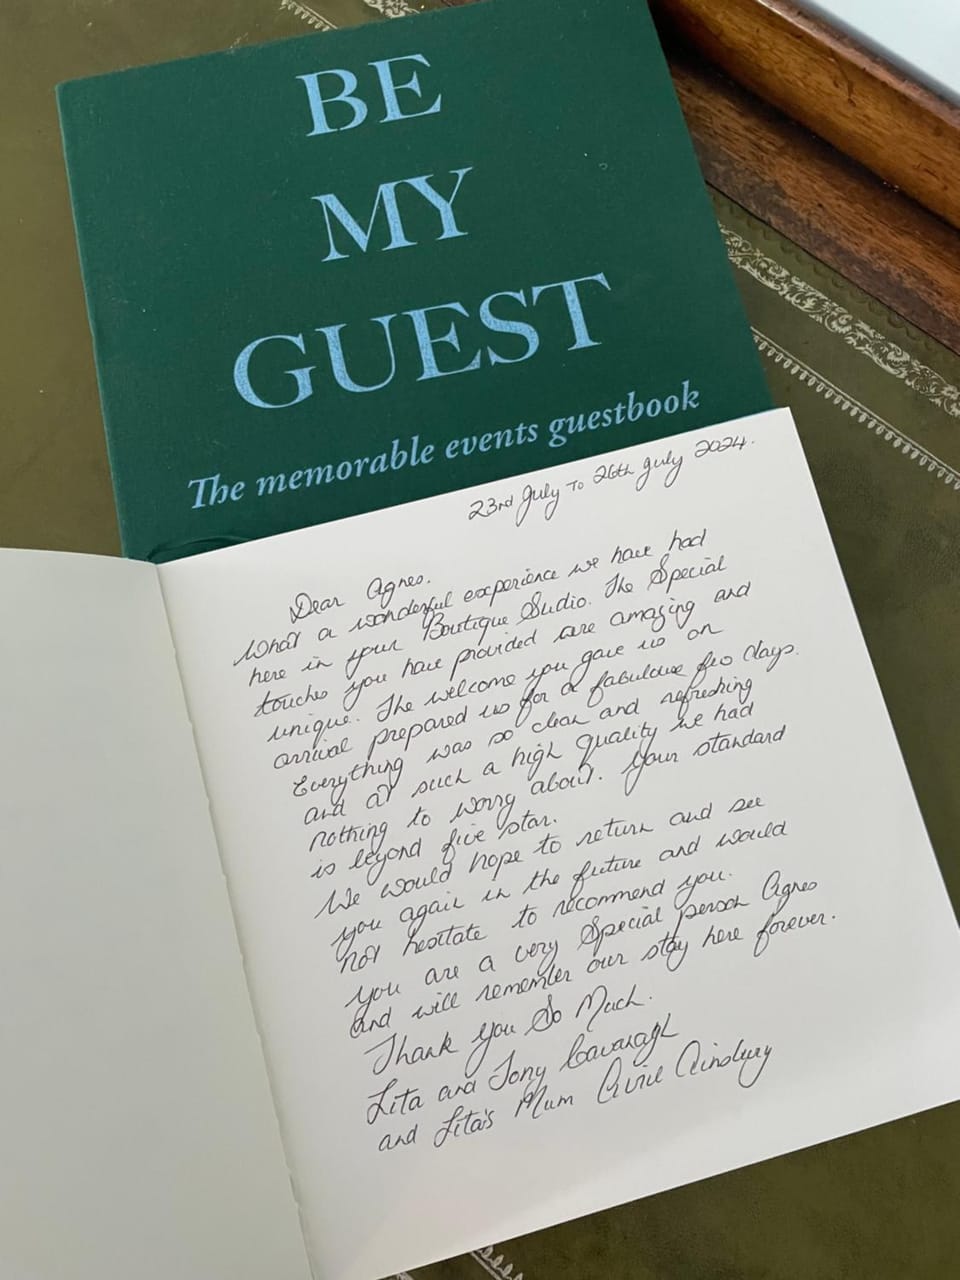 BE
MY
GUEST
The memorable events guestbook
23rd July To 26th July 2024.
Dear Agnes.
What a wonderful experience we have had
here in your Boutique Sudio. The Special
touches you have provided are amazing and
unique. The welcome you gave us on
arrival prepared us for a fabulous few days.
Everything was so clean and refreshing
and at such a high quality we had
nothing to worry about. Your standard
is beyond five star.
We would hope to return and see
you again in the future and would
not hesitate to recommend you.
you are a very Special person Agnes
and will remember our stay here forever.
Thank you So Much.
Lita and Tony Cavanagh
and Lita's Mum